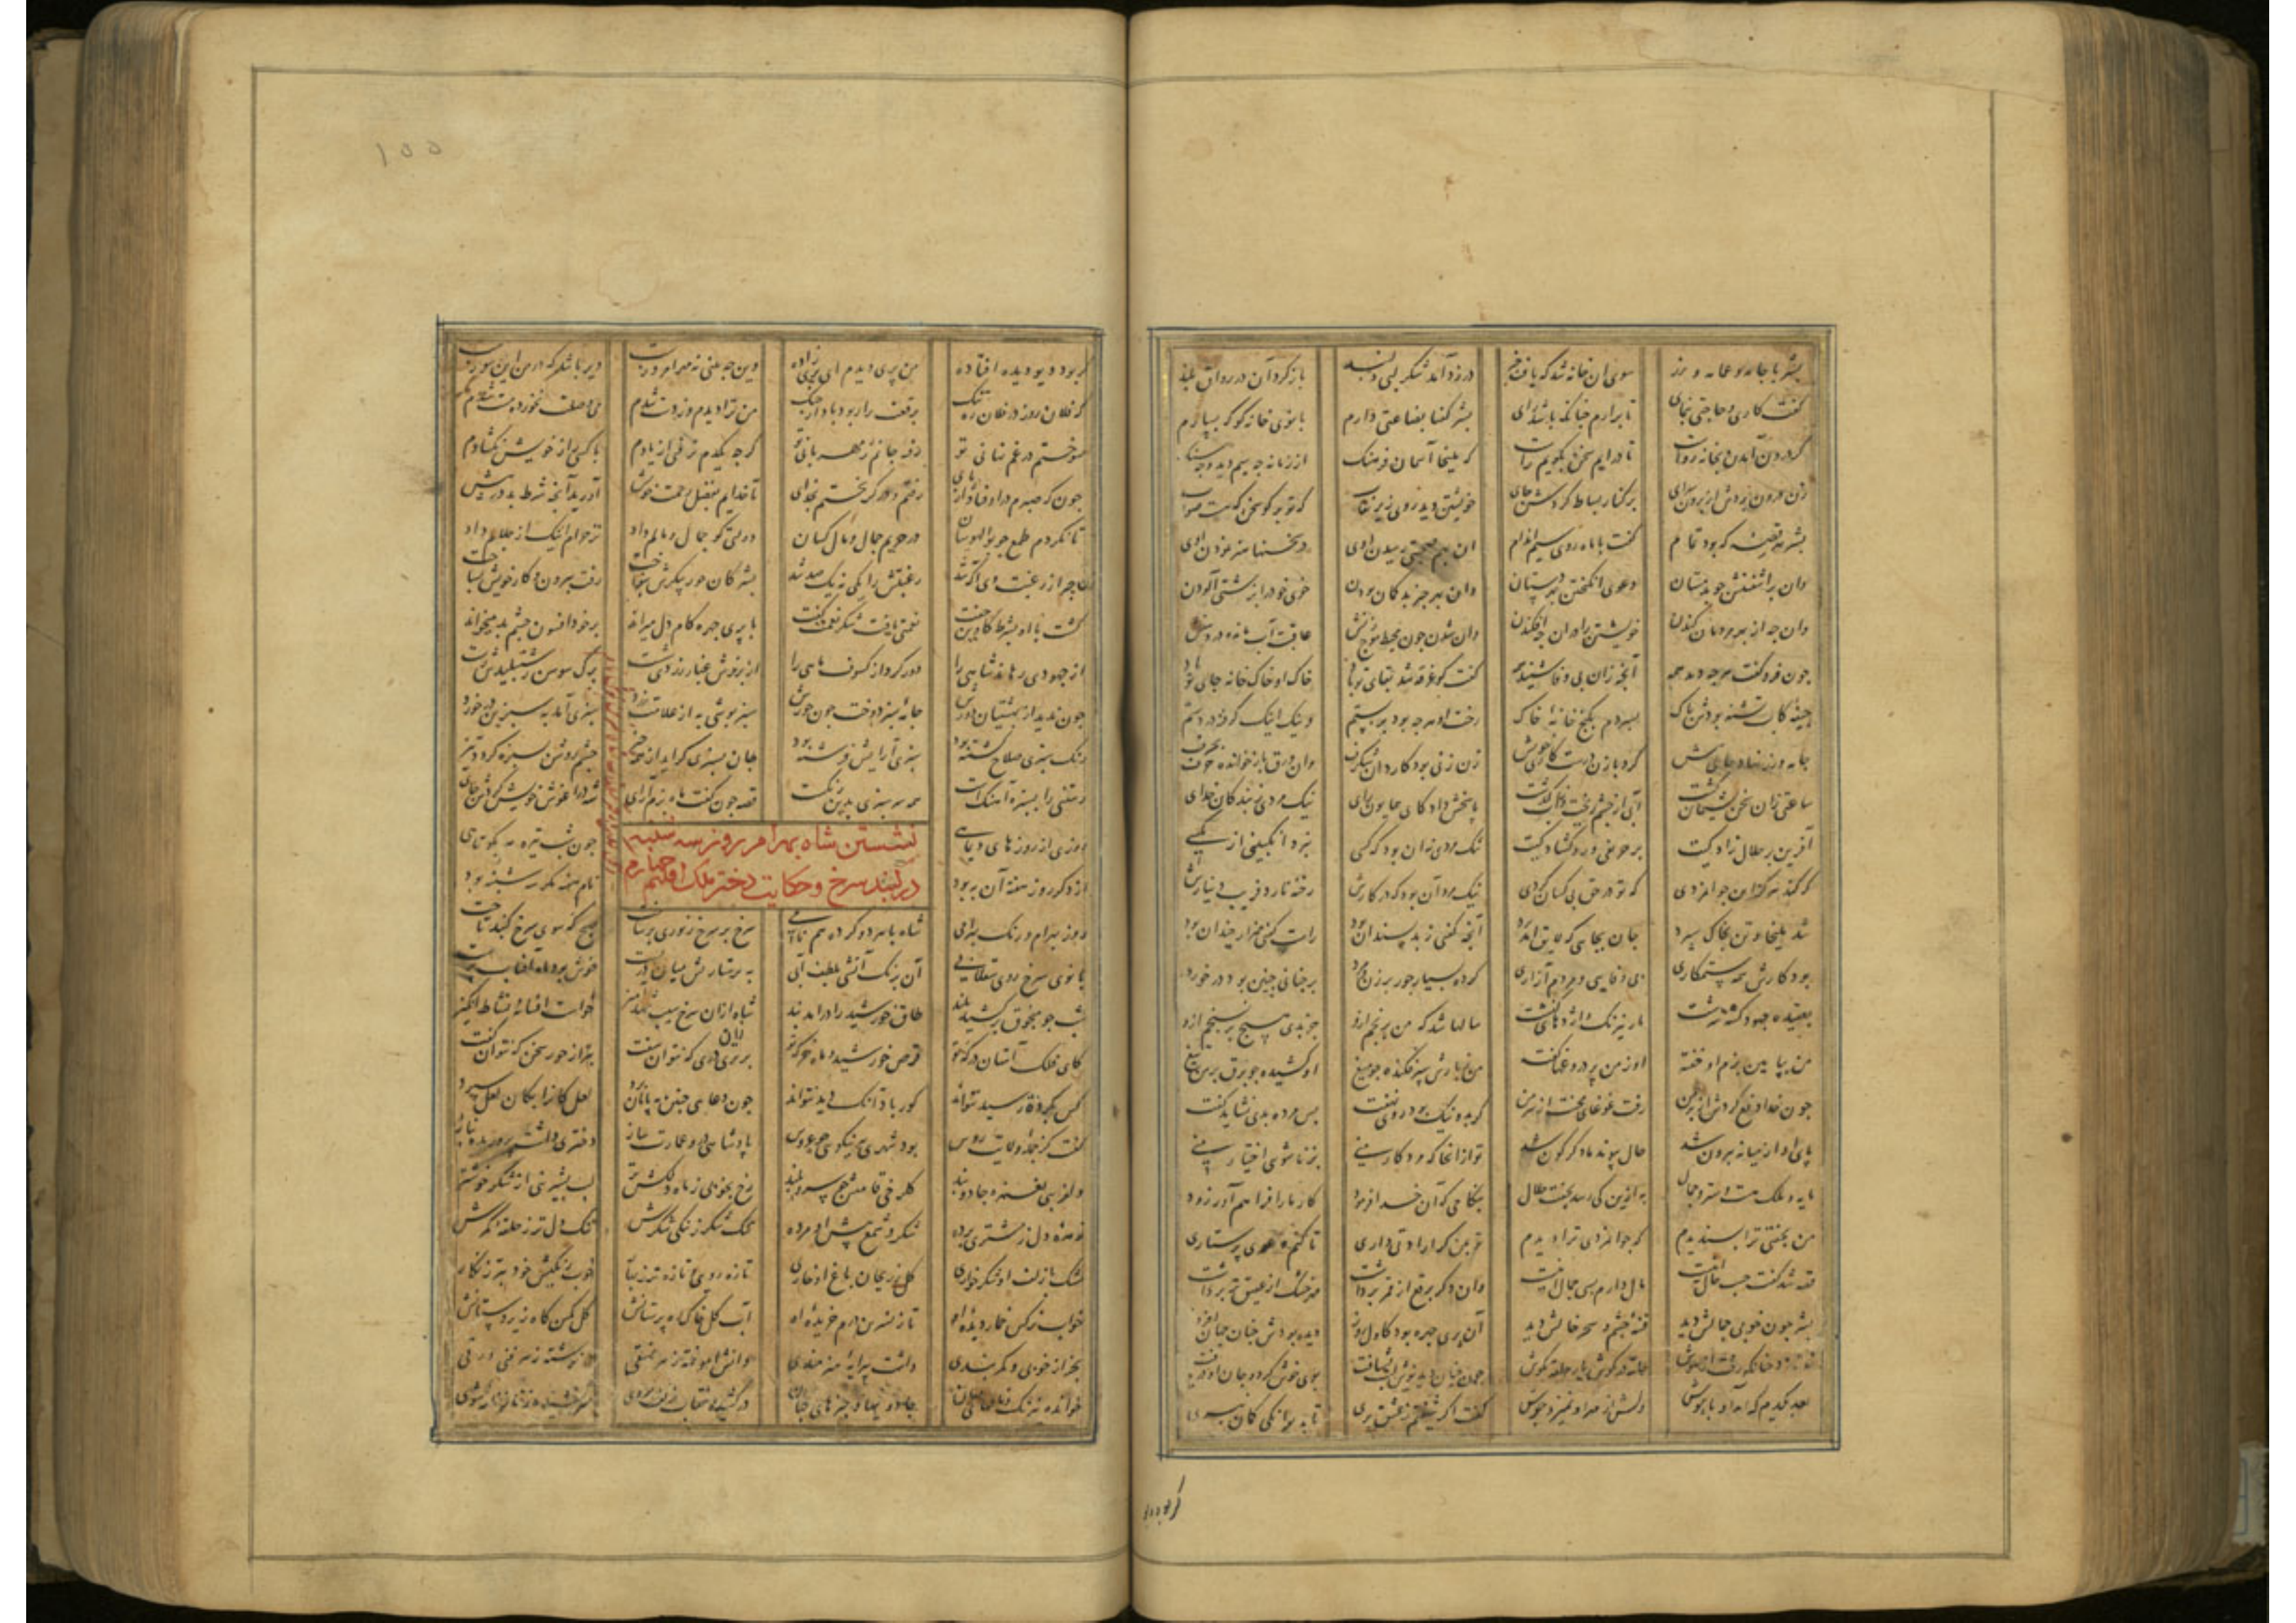 بشر با جامه و عمامه و زر سوی ان خانه شد که یافت خبر در زد آمد شکر لبی دلبند باز کرد آن در رواق بلند
گفت کاری و حاجتی بنمای تا برارم چنانکه باشد رای بشر گفتا بضاعتی دارم بانوی خانه کو که بسپارم
گر درون آمدن بخانه رواست تا درایم سخن بگویم راست که ملیخا آسمان فرهنگ از زمانه چه
زن درون بردش از برون سرای بر کنار بساط کردش جای خویشتن دید روی زیر نقاب که تو برگو سخن که هست صواب
بشر هر قصه که بود تمام گفت با ماه روی سیم اندام ان بهم صحبتی رسیدن اوی در سخنها هنر نمودن اوی
وان براشفتنش چو بدمستان دعوی انگیختن بدستان وان بهر چیز بدگمان بودن خوی خود را بزشتی آلودن
وان چه از بهر دیگران کندن خویشتن را در ان چه افکندن وان شدن چون محیط موج زنش عاقبت آب مانده در دهنش
چون فرو گفت هر چه دید همه آنچه زان بی وفا شنید همه گفت کو غرقه شد بقای تو باد خاک او خاک خانه جای تو باد
جیفه کاب شسته بودش پاک بسپردم بگنج خانه خاک رخت او هر چه بود بر بستم وینک اینک گرفته در دستم
جامه و زر نهاد حالی پیش کرد بازن درست کاری خویش زن زنی بود کاردان شگرف وان ورق باز خوانده حرف بحرف
ساعتی زان سخن پشیمان گشت آبی از چشم ریخت وزان بگذشت پاسخش داد کای همایون رای نیک مردی ز بندگان خدای
آفرین بر حلال زادگیت بر حریفی و رو گشادگیت نیک مردی نه ان بود که کسی ببرد انگبینی از مگسی
که کند هرگز این جوانمردی که تو در حق بی کسان کردی نیک مرد آن بود که در کارش رخنه نارد فریب دینارش
شد ملیخا و تن بخاک سپرد جان بجایی که لایق آمد برد آنچه گفتی ز بد پسندان بود راست گفتی هزار چندان بود
بود کارش همه ستمکاری بی وفایی و مردم آزاری کرده بسیار جور بر زن و مرد بر چنانی چنین بود در خورد
بعقیده جهود کینه سرشت مار نیرنگ و اژدهای کنشت سالها شد که من برنجم ازو جز بدی هیچ بر نسنجم ازو
من ببالین نرم او خفته او ز من پر دروغها گفته من ببارش سپر فکنده چو میغ او کشیده چو برق بر من تیغ
چون خدا دفع کردش از سر من رفت غوغای محنت از در من گر بد و نیک بود روی نهفت پس مرده بدی نشاید گفت
پای او از میانه بیرون شد حال پیوند ما دگرگون شد تو از انجا که مرد کار منی بزناشوئی اختیار منی
مایه و ملک هست و ستر و جمال به ازین کی رسد بجفت حلال بنکاحی که آن خدا فرمود کار ما را فراهم آور زود
من بجفتی ترا پسندیدم که جوانمردی ترا دیدم تو بمن گر ارادتی داری تا کنم دعوی پرستاری
قصه شد گفت حسب حال اینست مال دارم بسی جمال اینست وان دگر برقع از قمر برداشت مهر خشک از عقیق تر برداشت
بشر چون خوبی جمالش دید فتنه چشم و سحر خالش دید آن پری چهره بود کاول روز دیده بودش چنان جهان افروز
نعره زد چنانکه رفت از هوش حلقه در گوش یار حلقه بگوش چون چنان دید نوش لب بشتافت بوی خوش کرد و جان او دریافت
بعد یکدم که آمد او باهوش دلش از مهر او جوش گفت اگر شیفتم ز عشق پری تا بدیوانگی گمان نبری
گر بود دیو
۱۵۵
گر بود دیو دیده افتاده من پری دیدم ای پری زاده وین چه بینی نه مهر امروزست دیر باشد که در من این سوزست
که فلان روز در فلان ره تنگ برقعت را ربود باد از چنگ من ترا دیدم و ز دست شدم می وصلت نخورده مست شدم
سوختم در غم نهانی تو رفت جانم ز مهربانی تو گرچه یکدم نرفتی از یادم با کسی راز خویش نگشادم
چون که صبرم در اوفتاد از پای رفتم و در گریختم بخدای تا خدایم بفضل و رحمت خویش آورید آنچه شرط بد در پیش
تا نکردم طمع چو بوالهوسان در حریم جمال و مال کسان دولتی کو جمال و مالم داد نز حرام اینک از حلالم داد
ماه چو از رغبت وی آگه شد رغبتش را یکی نه یک صد شد بشر کان حور پیکرش بنواخت رفت بیرون و کار خویش بساخت
گشت با او بشرط کاوین جفت نعمتی یافت شکر نعمت گفت با پری چهره کام دل میراند بر خود افسون چشم بد میخواند
از جهودی رهاند شاهی را دور کرد از کسوف ماهی را از پرندش غبار زردی شست برگ سوسن ز شنبلیدش رست
چون ندید از بهشتیان دورش جامه سبز دوخت چون حورش سبز پوشی به از علامت زرد سبزی آمد به سرو بن در خورد
رنگ سبزی صلاح کشته بود سبزی آرایش فرشته بود جان بسبزی گراید از همه چیز چشم روشن بسبزه گردد نیز
رستنی را بسبزه آهنگ است همه سرسبزی بدین رنگست قصه چون گفت ماه بزم آرای شه در آغوش خویش کردش جای
نشستن شاه بهرام روز سه شنبه
در گنبد سرخ و حکایت دختر ملک اقلیم چهارم
روزی از روزهای دیماهی چون شب تیره مه بکوتاهی
از دگر روز هفته آن به بود نام هفته مگر سه شنبه بود
روز بهرام و رنگ بهرامی شاه با هر دو کرده هم نامی سرخ بر سرخ زیوری بر ساخت صبح گه سوی سرخ گنبد تاخت
بانوی سرخ روی سقلابی آن برنگ آتشی بلطف آبی به پرستاریش میان در بست خوش بود ماه آفتاب پرست
شب چو منجوق بر کشید بلند طاق خورشید را درید پرند شاه ازان سرخ سیب شهد آمیز خواست افسانه نشاط انگیز
کای فلک آستان درگه تو قرص خورشید ماه خرگه تو برتری دری که بتوان سفت بهتر از هر سخن که بتوان گفت
کس بگرد تو رسید نتواند کور باد آنکه دید نتواند چون دعایی چنین بپایان برد لعل کانرا بکان لعل سپرد
گفت کز جمله ولایت روس بود شهری بنیکوی چو عروس پادشاهی درو عمارت ساز دختری داشت پرورده بناز
دلفریبی بغمزه جادو بند گلرخی قامتش چو سرو بلند رخ بخوبی ز ماه دلکش تر لب بشیرینی از شکر خوشتر
زهره دل ز مشتری برده شکر و شمع پیش او مرده تنگ شکر ز تنگی شکرش تنگ دل تر ز حلقه کمرش
مشک با زلف او جگر خواری گل ز ریحان باغ او خاری تازه روی تازه تر ز بهار خوب رنگیش خود بهتر ز نگار
خواب نرگس خمار دیده او ناز نسرین درم خریده او آب گل خاک ره پرستانش گل کمر کاه زیر دستانش
بجز از خوبی و شکر خندی داشت پیرایه هنرمندی دانش آموخته ز هر نسقی در نوشته ز هر فنی ورقی
خوانده نیرنگ نامهای جهان جادوئیها و چیزهای نهان در کشیده نقاب زلف بروی سر کشیده ز بار نامه شوی